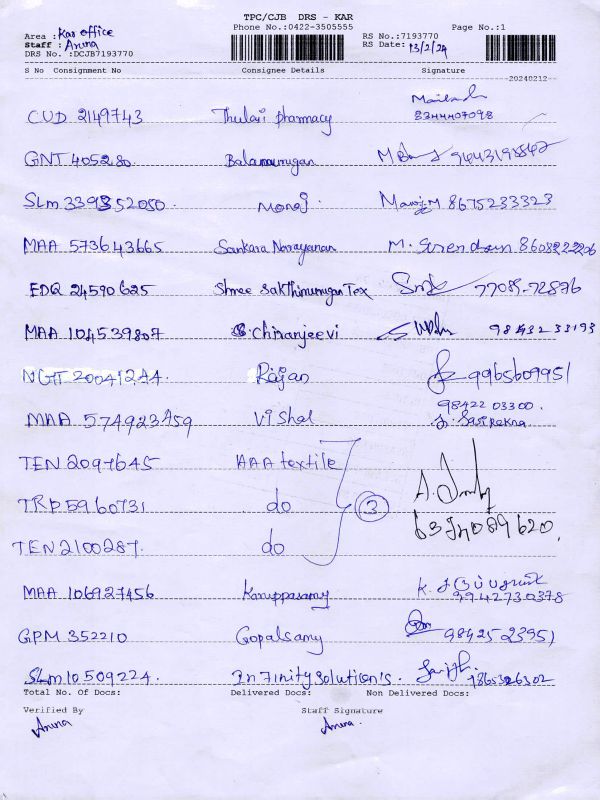 TPC/CJB DRS - KAR
Phone No.:0422-3505555
Page No.:1
Area : Kar office
Staff : Aruna
DRS No. :DCJB7193770
RS No.:7193770
RS Date: 13/2/24
S No Consignment No Consignee Details Signature
20240212
CUD 2149743 Thulasi pharmacy 8244407098
GNT 405280 Balamurugan
SLM 339352050 Manoj Manoj.M 8675233323
MAA 573643665 Sankara Narayanan M. Surendran
EDQ 24590625 Shree Sakthimurugan Tex 77089-72876
MAA 104539807 S. Chiranjeevi 98432 33193
NGT 20041244 Rajan 9965609951
MAA 574923459 Vishal 98422 03300.
S. Sasirekha
TEN 2097645 AAA textile
TRP 5960731 do 3
TEN 2100287. do
MAA 106927456 Karuppasamy K. கருப்பசாமி
9942730378
GPM 352210 Gopalsamy 9842523951
SLM 10509224. Infinity Solution's.
Total No. Of Docs: Delivered Docs: Non Delivered Docs:
Verified By Staff Signature
Aruna Aruna.